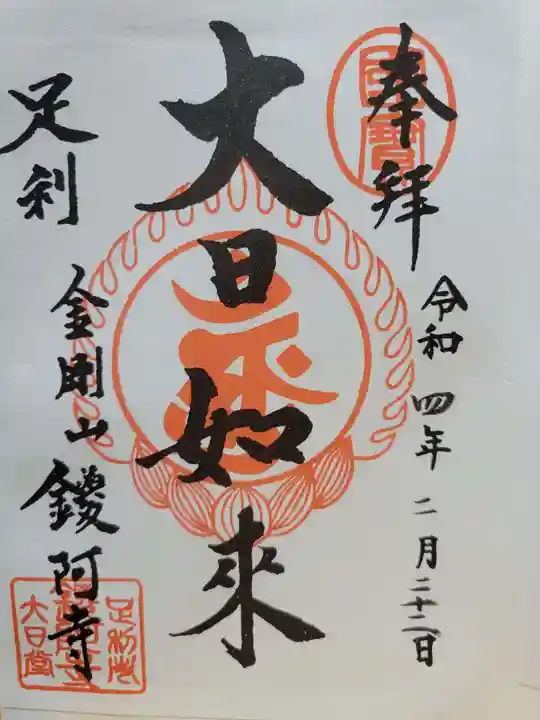 奉拝
國寶
令和四年二月二十二日
大日如來
足利
金剛山鑁阿寺
足利市
鑁阿寺
大日堂